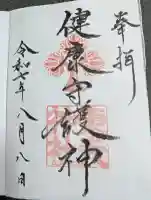 奉拝
健康守護神
令和七年八月八日